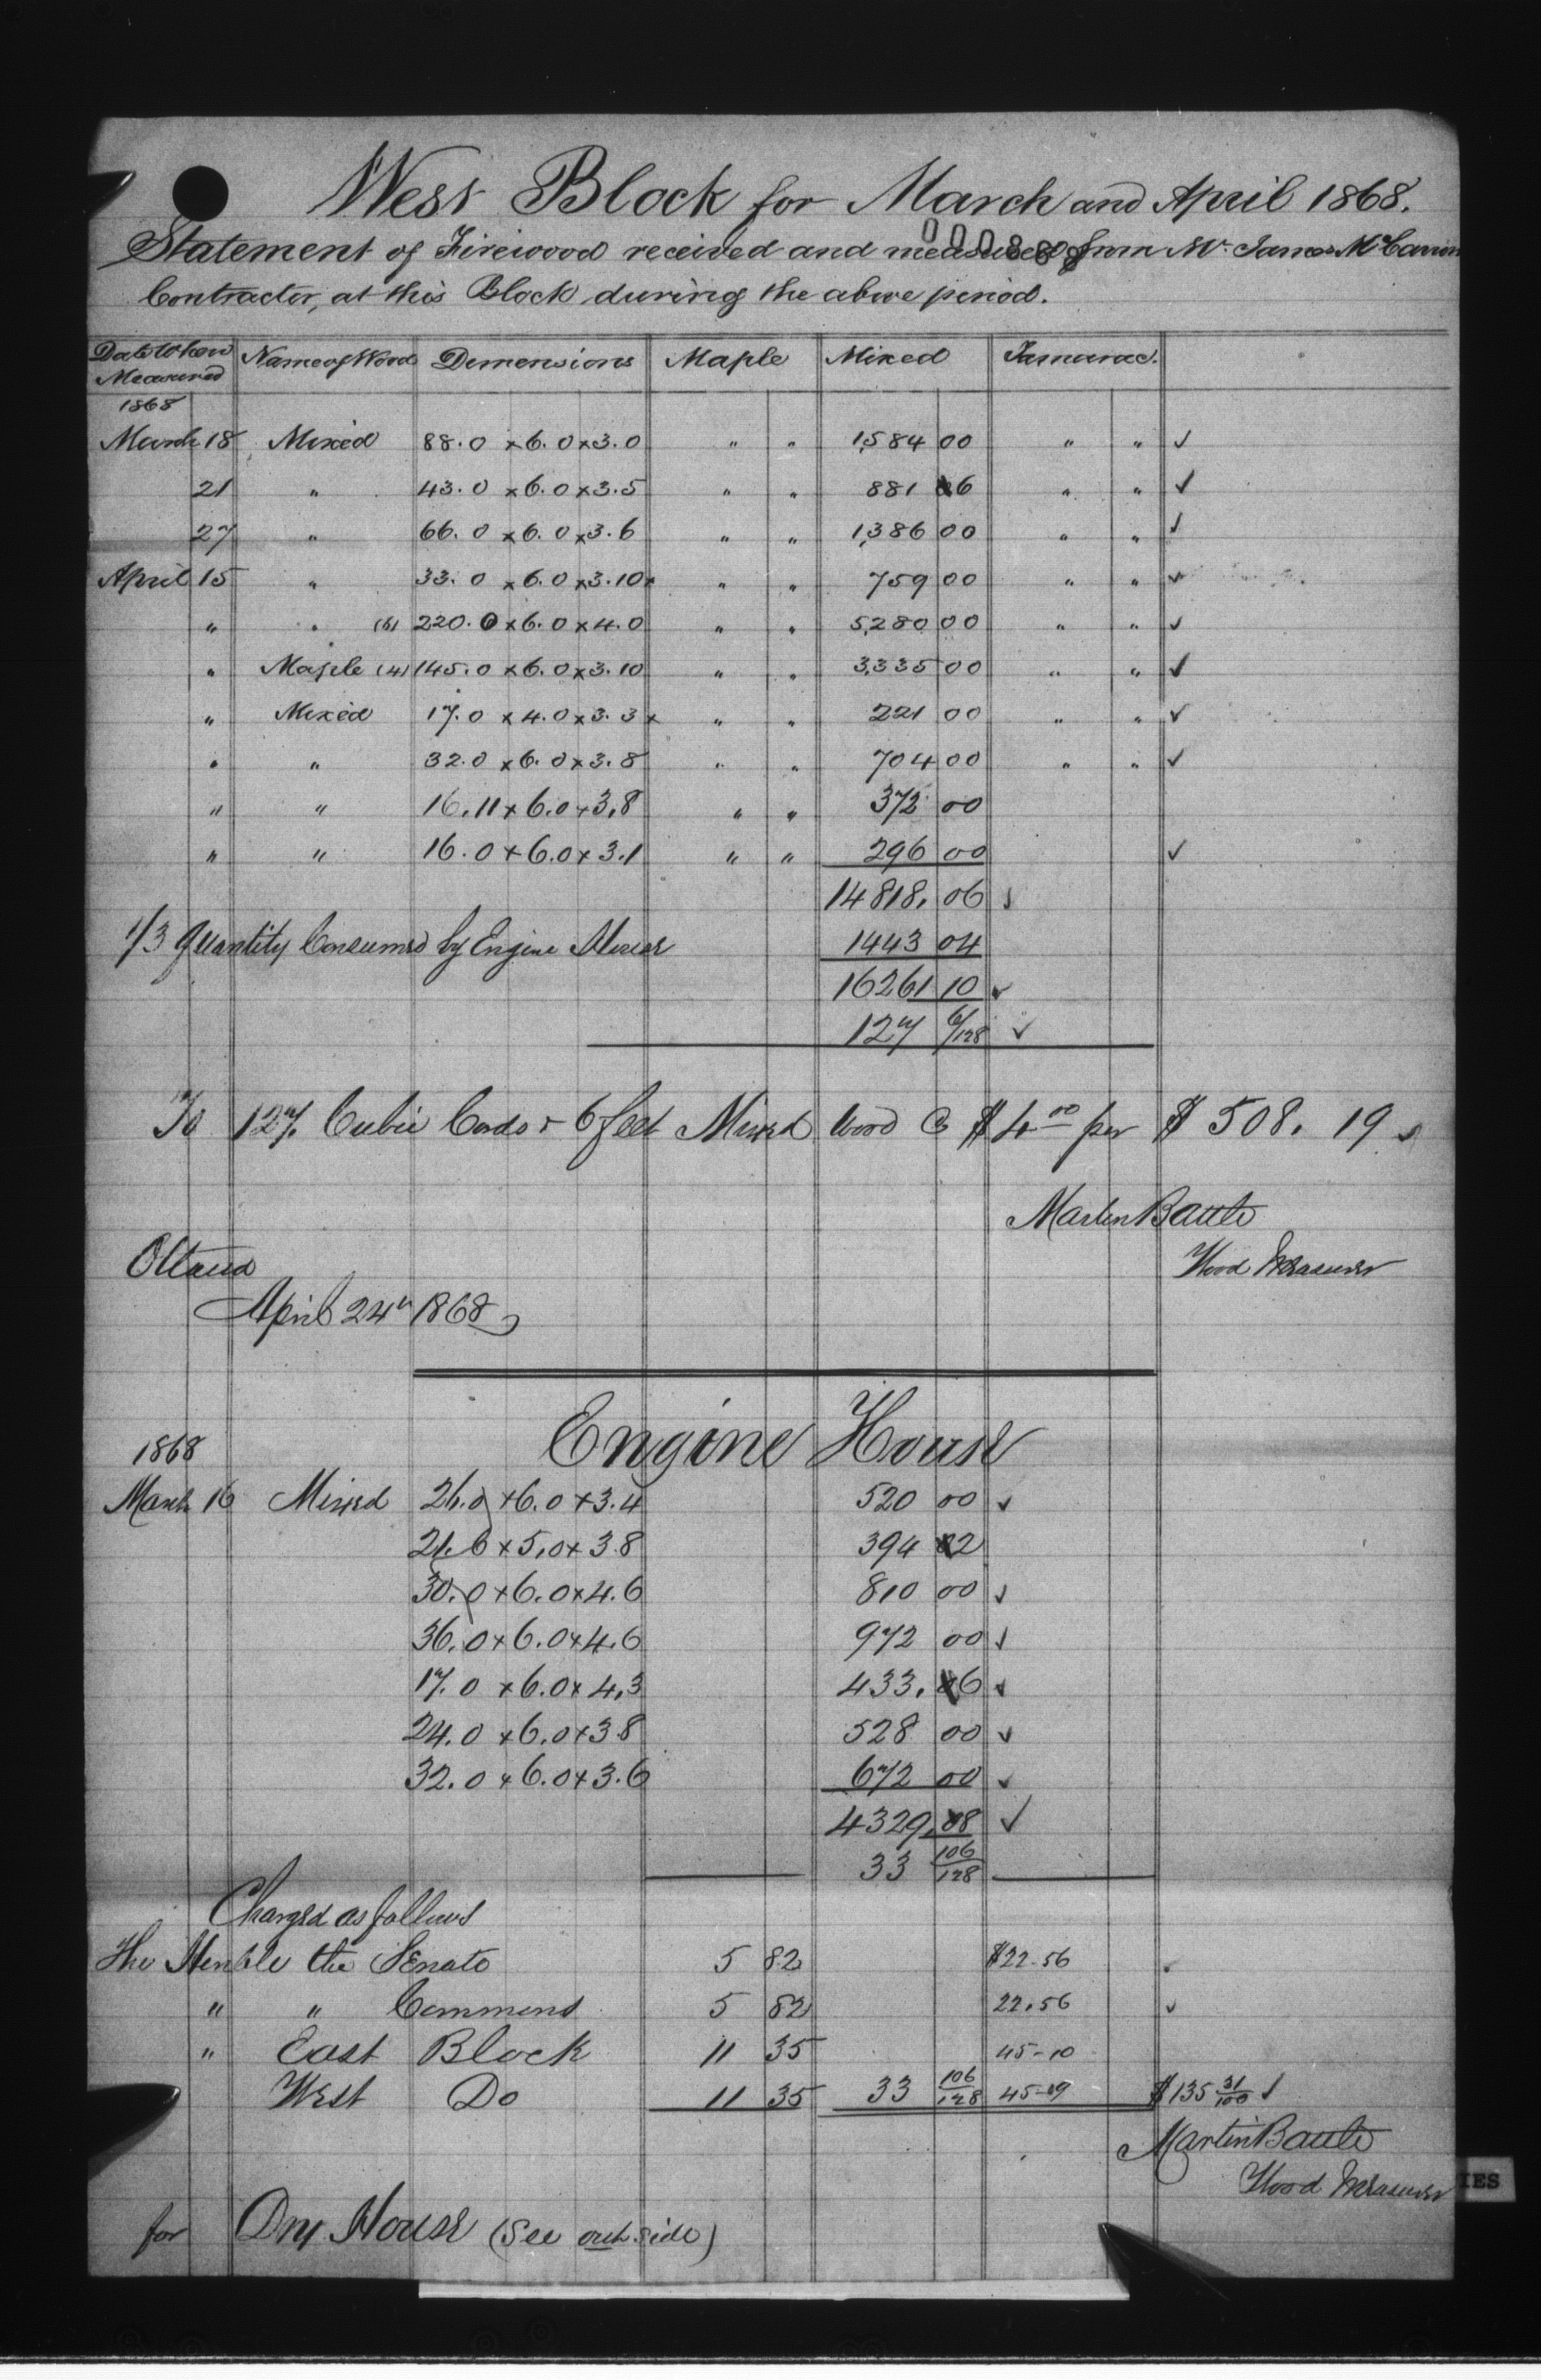 West Block for March and April 1868.
000888
Statement of Firewood received and measured from Mr. James McCarron
Contractor, at this Block during the above period.
Date When Measured Name of Wood Dimensions Maple Mixed Tamarac.
1868
March 18 Mixed 88.0 x 6.0 x 3.0 " " 1,584 00 " " ✓
21 " 43.0 x 6.0 x 3.5 " " 881 6 " " ✓
27 " 66.0 x 6.0 x 3.6 " " 1,386 00 " " ✓
April 15 " 33.0 x 6.0 x 3.10 x " " 759 00 " " ✓
" " (6) 220.0 x 6.0 x 4.0 " " 5,280 00 " " ✓
" Maple (4) 145.0 x 6.0 x 3.10 " " 3,335 00 " " ✓
" Mixed 17.0 x 4.0 x 3.3 x " " 221 00 " " ✓
" " 32.0 x 6.0 x 3.8 " " 704 00 " " ✓
" " 16.11 x 6.0 x 3.8 " " 372 00
" " 16.0 x 6.0 x 3.1 " " 296 00 ✓
14818. 06 ✓
1/3 Quantity Consumed by Engine House 1443 04
16261 10 ✓
127 6/128 ✓
To 127 Cubic Cords & 6 feet Mixed Wood @ $4.00 per $508. 19 ✓
Martin Battle
Wood Measurer
Ottawa
April 24th 1868
Engine House
1868
March 16 Mixed 26.0 x 6.0 x 3.4 520 00 ✓
21.6 x 5.0 x 3.8 394 2
30.0 x 6.0 x 4.6 810 00 ✓
36.0 x 6.0 x 4.6 972 00 ✓
17.0 x 6.0 x 4.3 433. 6 ✓
24.0 x 6.0 x 3.8 528 00 ✓
32.0 x 6.0 x 3.6 672 00 ✓
4329. 8 ✓
33 106/128
Charged as follows
The Honble the Senate 5 82 $22-56 ✓
" " Commons 5 82 22.56 ✓
" East Block 11 35 45-10
West Do 11 35 33 106/128 45-09 $135 31/100 ✓
Martin Battle
Wood Measurer
for Dry House (See outside)
IES